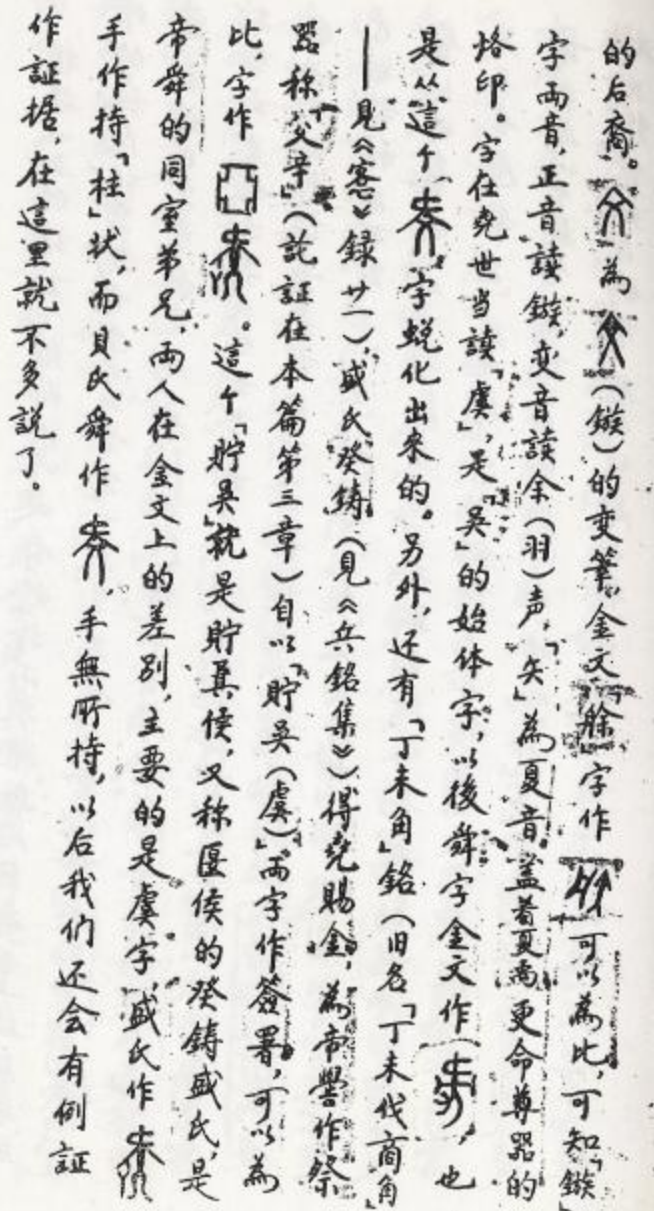 的后裔。為（鏃）的变筆，金文「艅」字作可以為比，可知「鏃」
字両音，正音讀鏃，变音讀余（羽）声，「矢」為夏音。盖着夏禹更命尊器的
烙印。字在尭世当讀「虞」，是「吳」的始体字，以後舜字金文作，也
是从這个字蜕化出来的。另外，还有「丁未角」銘（旧名「丁未伐商角」
——見《愙》録廿一），盛氏癸鋳（見《兵銘集》）得尭賜金，為帝嚳作祭
器称「父辛」（詑証在本篇第三章）自以「貯吳（虞）」両字作簽署，可以為
比，字作。這个「貯吳」就是貯其侯，又称匽侯的癸鋳盛氏，是
帝舜的同室弟兄，両人在金文上的差别，主要的是虞字，盛氏作
手作持「柱」状，而貝氏舜作，手無所持，以后我们还会有例証
作証据，在這里就不多説了。